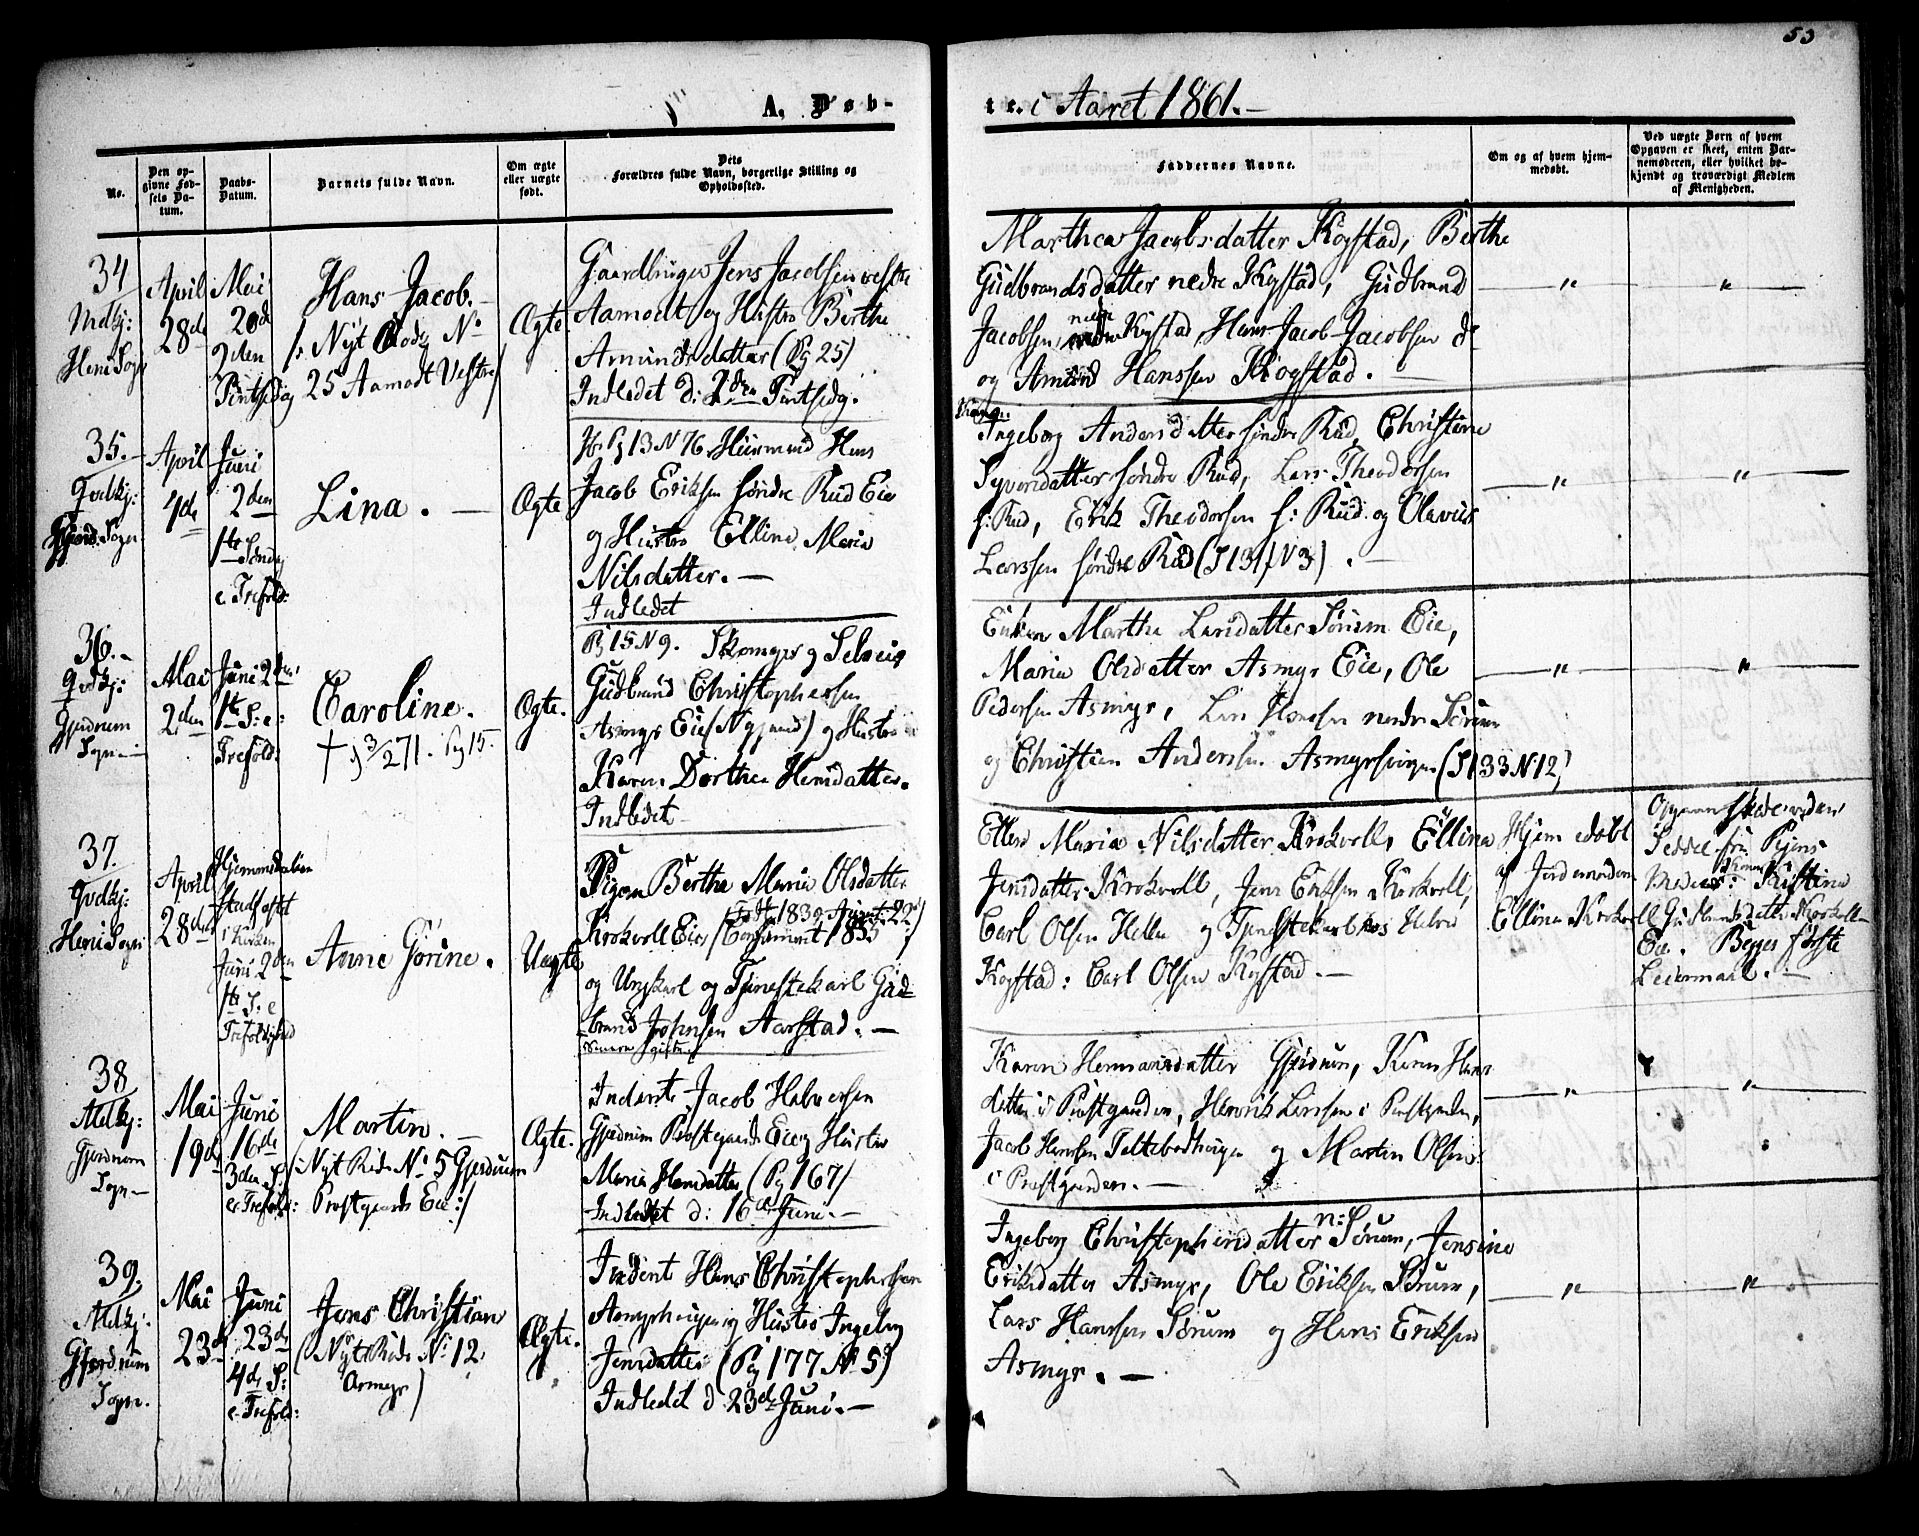 53
A. Døb-
te. i Aaret 1861.-
No.
Den opgivne Fødsels Datum.
Daabs-Datum.
Barnets fulde Navn.
Om ægte eller uægte født.
Dets Forældres fulde Navn, borgerlige Stilling og Opholdssted.
Faddernes Navne.
Om og af hvem hjemmedøbt.
Ved uægte Børn af hvem Opgaven er skeet, enten Barnemoderen, eller hvilket bekjendt og troværdigt Medlem af Menigheden.
34
Mdkj:
Heni Sogn
April
28de
Mai
20de
2den
Pintsedag
Hans Jacob.-
Nyt Rode No
25 Aamodt Vestre
Ægte
Gaardbruger Jens Jacobsen vestre
Aamodt og Hustro Berthe
Amundsdatter (Pg 25)
Indledet d: 2den Pintsedg.
Marthea Jacobsdatter Kogstad, Berthe
Gudbrandsdatter nedre Kogstad, Gudbrand
Jacobsen, nedre Kogstad, Hans Jacob Jacobsen
og Amund Hanssen Kogstad.-
35.-
Qvdkj:
Sogn
April
4de
Juni
2den
1ste Søndag
e. Trefold:
Lina.-
Ægte
Pg 13 N 76. Huusmand Hans
Jacob Eriksen søndre Rud Eie
og Hustro Elline Maria
Nilsdatter.-
Indledet
Ingeborg Andersdatter søndre Rud, Christine
Syversdatter søndre Rud, Lars Theodorsen
s: Rud, Erik Theodorsen s: Rud og Olavus
Larssen søndre Rud (S 131, N 3).-
36.-
Qvdkj:
Gjerdrum
Sogn-
Mai
2den
Juni 2den
1ste S: e:
Trefold:
Caroline.
† 9 3/2 71. Pg 15.
Ægte.
Pg 15 N 9. Skomager og Selveier
Gudbrand Christophersen
Asmyr Eie og Hustro
Karen Dorthea Hansdatter.
Indledet
Enken Marthe Larsdatter Sørum Eie,
Maria Olsdatter Asmyr Eie, Ole
Pedersen Asmyr, Lars Hanssen nedre Sørum
og Christian Anderssen (S 133 N 12)
37.
Qvdkj:
Heni Sogn
April
28de
Hjemmedaaben
Stadfæstet
i Kirken
Juni 2den
1ste S: e
Trefoldighed
Anne Gørine.
Uægte
Pigen Berthe Maria Olsdatter
Krokvoll Eie, (Confirmeret 1853
Født 1839 August 22)
og Ungkarl og Tjenestekarl Gud-
brand Johnsen Aarstad.-
Ellen Maria Nilsdatter Krokvoll, Ellina
Jensdatter Krokvoll, Jens Eriksen Krokvoll,
Carl Olsen Hellen og Tjenestekarl hos
Kogstad: Carl Olsen Kogstad.-
Hjemmedøbt
af Jordemoderen
Ellina Krokvoll
Opgaven skede ved en
Seddel fra Pigens
Moder: Kirstine
Gudbrandsdatter Krokvoll
Eie. Begges første
Leiermaal.-
38
Mdkj:
Gjerdrum
Sogn-
Mai
19de
Juni
16de
3den S:
e: Trefold:
Martin.-
(: Nyt Rode No 5 Gjerdrum
Præstgaards Eie:)
Ægte.
Inderst Jacob Halvorsen
Gjerdrum Præstegaards Eie og Hustro
Maria Hansdatter (Pg 167)
Indledet d: 16de Juni.-
Karen Hermansdatter Gjerdrum, Karen Hans
datter i Præstgaarden, Henrik Larssen i Præstgaarden,
Jacob Hanssen og Martin Olsen
i Præstgaarden.-
39.
Mdkj:
Gjerdrum
Sogn.
Mai
23de
Juni
23de
4de S:
e. Trefold:
Jens Christian
(Nyt Rode No 12
Asmyr)
Ægte.
Inderst Hans Christophersen
og Hustro Ingeborg
Jensdatter (Pg 177 No 5)
Indledet d 23de Juni.-
Ingeborg Christophersdatter n: Sørum, Jensine
Eriksdatter Asmyr, Ole Eriksen Sørum,
Lars Hanssen Sørum og Hans Eriksen
Asmyr.-